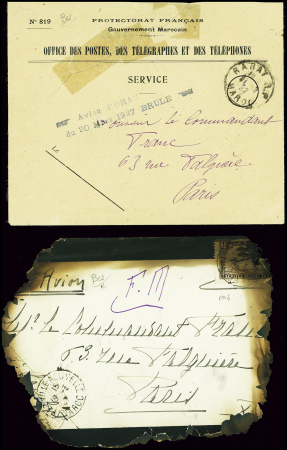 Nº 819
PROTECTORAT FRANÇAIS
Gouvernement Marocain
OFFICE DES POSTES, DES TÉLÉGRAPHES ET DES TÉLÉPHONES
SERVICE
RABAT
MAROC
Avion
du 20 Mars 1927 BRULE
Monsieur le Commandant
Franc
63 rue Falguière
Paris
Avion
F.M
Le Commandant
63 rue Falguière
Paris
MAROC